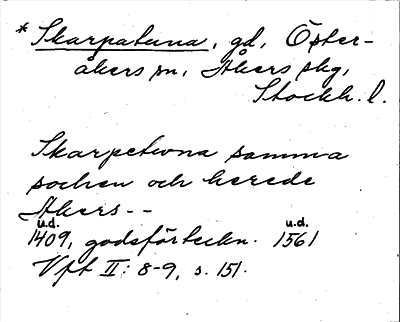 * Skarpatuna, gd, Öster-
åkers sn, Åkers skg,
Stockh. l.
Skarpetwna samma
sochen och herede
Akers--
u.d. u.d.
1409, godsförteckn. 1561
Vft II: 8-9, s. 151.